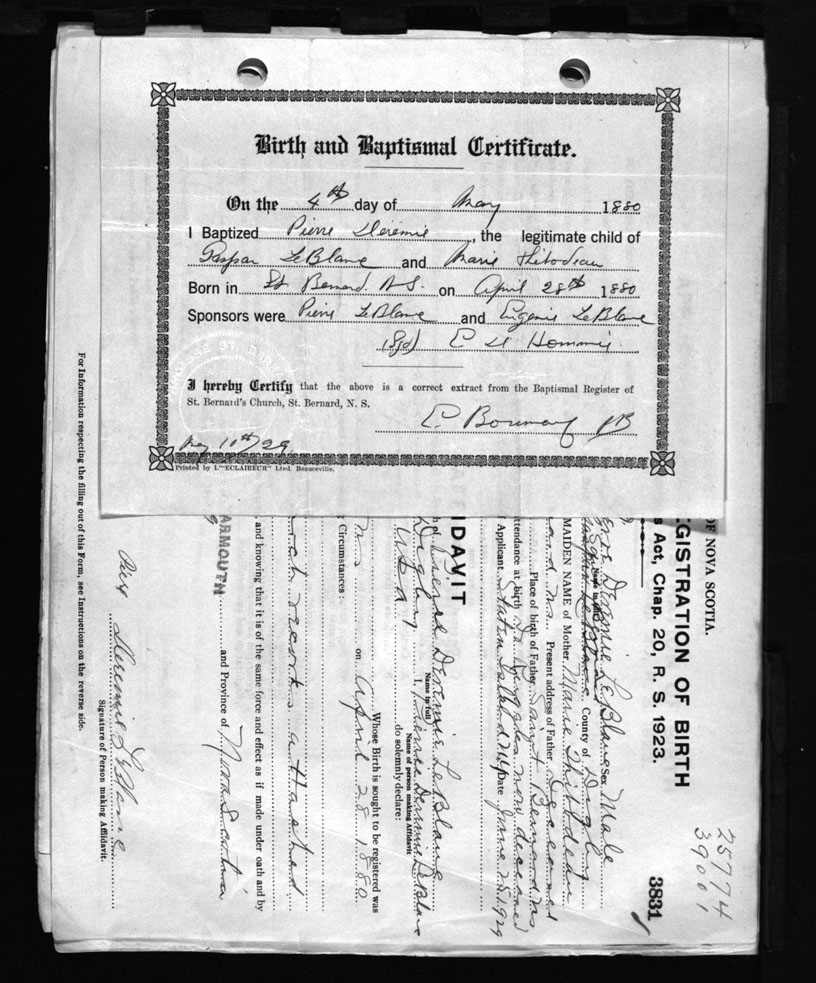 Birth and Baptismal Certificate.
On the 4th day of May 1880
I Baptized Pierre Deremie, the legitimate child of
Gaspar LeBlanc and Marie Thibodeau
Born in St. Bernard N.S. on April 28th 1880
Sponsors were Pierre LeBlanc and Eugenie LeBlanc
I hereby Certify that the above is a correct extract from the Baptismal Register of
St. Bernard's Church, St. Bernard, N. S.
May 10th/29
Printed by L'"ECLAIREUR" Lted. Beauceville.
25774
39001
OF NOVA SCOTIA.
EGISTRATION OF BIRTH
s Act, Chap. 20, R. S. 1923.
3831
Deremie LeBlanc Sex Male
County of Digby
MAIDEN NAME of Mother Marie Thibodeau
Present address of Father Deceased
Place of birth of Father Saint Bernard NS
attendance at birth Dr. now deceased
Applicant Staten Island N.Y. Date June 25 1929
IDAVIT
Pierre Deremie LeBlanc
Name in full
Digby I, Pierre Deremie LeBlanc
Name of person making Affidavit
USA do solemnly declare:
Whose Birth is sought to be registered was
NS on April 28 1880
g Circumstances:
records attached
and knowing that it is of the same force and effect as if made under oath and by
ARMOUTH and Province of Nova Scotia
Deremie LeBlanc
Signature of Person making Affidavit.
For Information respecting the filling out of this Form, see Instructions on the reverse side.